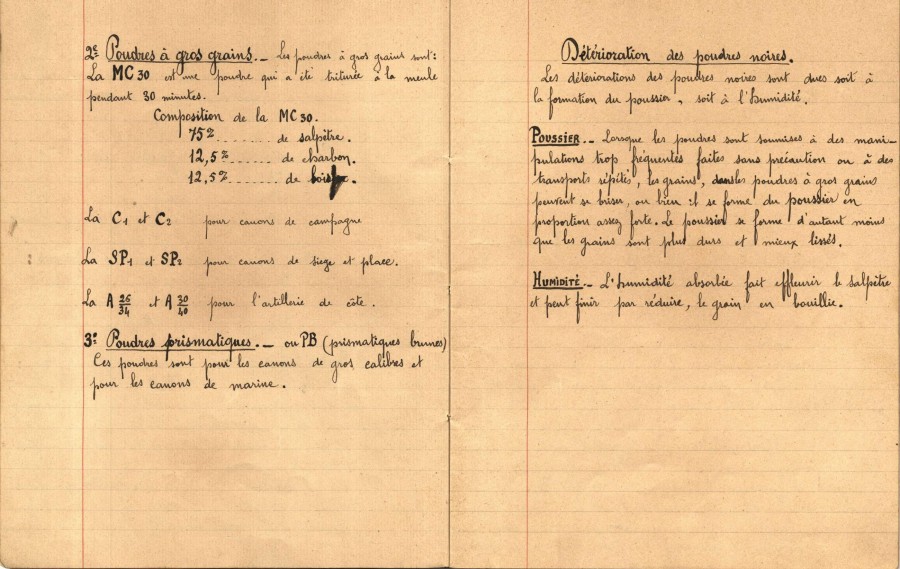 2º Poudres à gros grains. _ Les poudres à gros grains sont:
La MC 30 est une poudre qui a été triturée à la meule
pendant 30 minutes.
Composition de la MC 30.
75% ........ de salpêtre.
12,5% ...... de charbon.
12,5% ...... de
La C1 et C2 pour canons de campagne
La SP1 et SP2 pour canons de siege et place.
La A 26/34 et A 30/40 pour l'artillerie de côte.
3º Poudres prismatiques. _ ou PB (prismatiques brunes)
Ces poudres sont pour les canons de gros calibres et
pour les canons de marine.
Détérioration des poudres noires.
Les détériorations des poudres noires sont dues soit à
la formation du poussier, soit à l'humidité.
POUSSIER. _ Lorsque les poudres sont soumises à des mani-
pulations trop fréquentes faites sans précaution ou à des
transports répétés, les grains, dans les poudres à gros grains
peuvent se briser, ou bien il se forme du poussier en
proportion assez forte. Le poussier se forme d'autant moins
que les grains sont plus durs et mieux lissés.
HUMIDITÉ. _ L'humidité absorbée fait effleurir le salpêtre
et peut finir par réduire, le grain en bouillie.